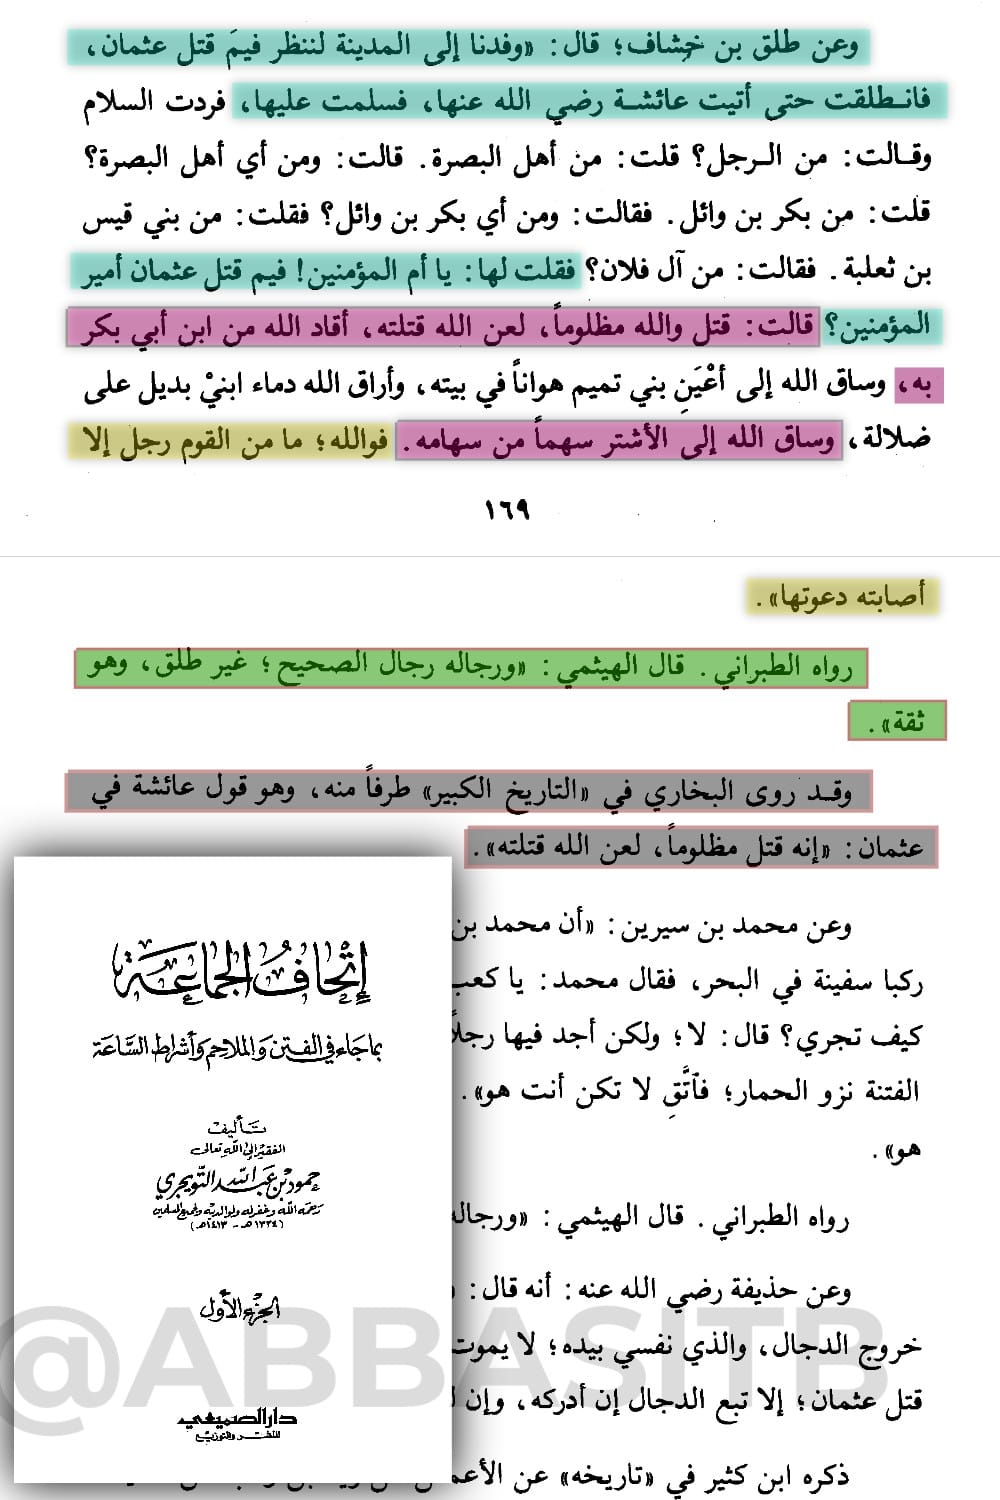 وعن طلق بن خُشاف؛ قال: «وفدنا إلى المدينة لننظر فيمَ قتل عثمان،
فانطلقت حتى أتيت عائشة رضي الله عنها، فسلمت عليها، فردت السلام
وقالت: من الرجل؟ قلت: من أهل البصرة. قالت: ومن أي أهل البصرة؟
قلت: من بكر بن وائل. فقالت: ومن أي بكر بن وائل؟ فقلت: من بني قيس
بن ثعلبة. فقالت: من آل فلان؟ فقلت لها: يا أم المؤمنين! فيم قتل عثمان أمير
المؤمنين؟ قالت: قتل والله مظلوماً، لعن الله قتلته، أقاد الله من ابن أبي بكر
به، وساق الله إلى أعْيَنِ بني تميم هواناً في بيته، وأراق الله دماء ابنيْ بديل على
ضلالة، وساق الله إلى الأشتر سهماً من سهامه. فوالله؛ ما من القوم رجل إلا
١٦٩
أصابته دعوتها».
رواه الطبراني. قال الهيثمي: «ورجاله رجال الصحيح؛ غير طلق، وهو
ثقة».
وقد روى البخاري في «التاريخ الكبير» طرفاً منه، وهو قول عائشة في
عثمان: «إنه قتل مظلوماً، لعن الله قتلته».
وعن محمد بن سيرين: «أن محمد بن
ركبا سفينة في البحر، فقال محمد: يا كعب
كيف تجري؟ قال: لا؛ ولكن أجد فيها رجلاً
الفتنة نزو الحمار؛ فاتَّقِ لا تكن أنت هو».
هو».
رواه الطبراني. قال الهيثمي: «ورجاله
وعن حذيفة رضي الله عنه: أنه قال:
خروج الدجال، والذي نفسي بيده؛ لا يموت
قتل عثمان؛ إلا تبع الدجال إن أدركه، وإن
ذكره ابن كثير في «تاريخه» عن
إتحاف الجماعة
بما جاء في الفتن والملاحم وأشراط الساعة
تأليف
الفقير إلى الله تعالى
حمود بن عبد الله التويجري
رحمه الله وغفر له ولوالديه ولجميع المسلمين
(١٣٣٤هـ - ١٤١٣هـ)
الجزء الأول
دار الصميعي
للنشر والتوزيع
@ABBASITB